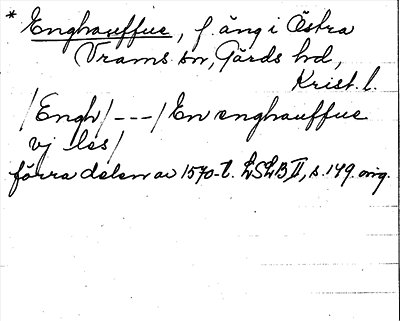 * Enghauffue, f. äng i Östra
Vrams sn, Gärds hd,
Krist. l.
/Engh/---/En enghauffue
vj les/
förra delen av 1570-t. LSLB II, s. 149. orig.